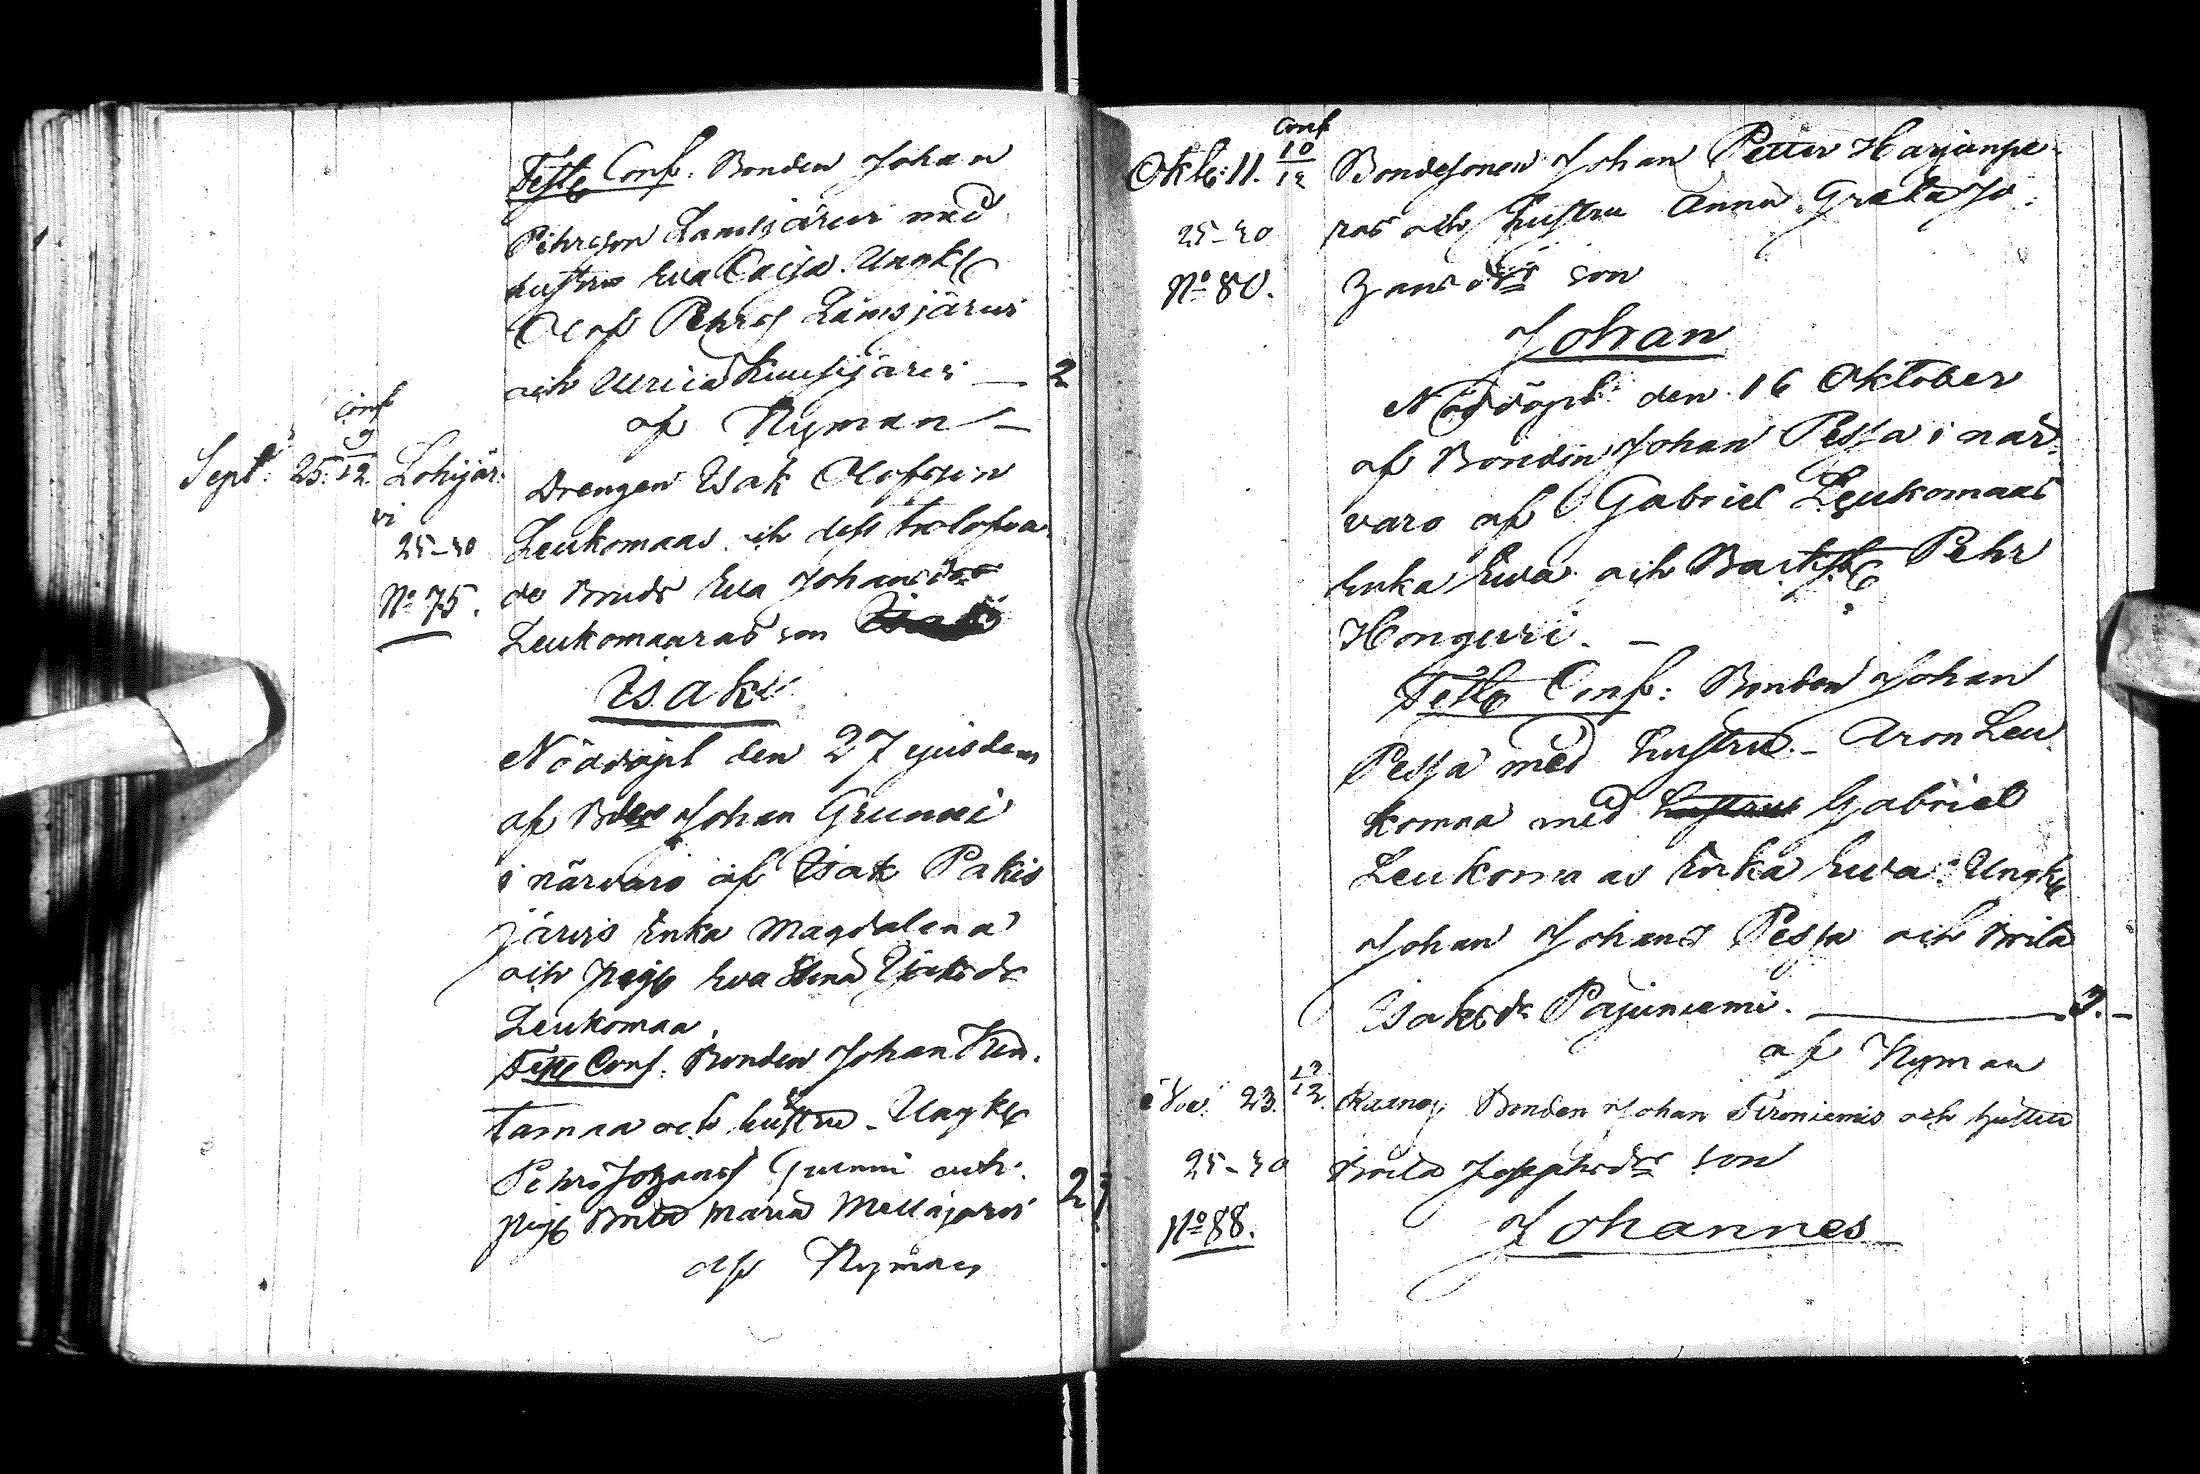 Teste Conf. Bonden Johan
Pehrsson Lamsijärvi med
hustru Eva Cajsa. Ungk
Olof Pehrs Lamsijärvi
och Ulrica Kuusijärvi — 2
af Nyman —
Conf
Sept. 25. 9/12 Lohijär-
vi
25-30
No 75.
Drengen Isak Olofsson
Leukomaas och dess trolofva-
de Bruds Eva Johansdr
Leukomaaras son
Isak
Nöddöpt den 27 ejusdem
af Bden Johan Grunni
i närvaro af Isak Pakis
järvis Enka Magdalena
och pig Eva Stina Isaksdr
Leukomaa.
Teste Conf. Bonden Johan Ken-
tamaa och hustru - Ungk
Pehr Johans Gunni och
pig Brita Maria Mellajärvi 2
af Nyman
Conf
Oktb. 11. 10/12 Bondesonen Johan Petter Harjunpe-
25-30 ras och hustru Anna Greta Jo-
No 80. hansdrs son
Johan
Nöddöpt den 16 Oktober
af Bonden Johan Pessa i när-
varo af Gabriel Leukomaas
Enka Eva och Bactist Pehr
Honguri. —
Teste Conf: Bonden Johan
Pessa med hustru - Aron Leu-
komaa med hustru Gabriel
Leukomaas Enka Eva: Ungk
Johan Johans Pessa och Brita
Isaksdr Pajuniemi. — 3. —
af Nyman
Nov. 23. 12/12. Bonden Johan Tironiemis och hustru
25-30 Brita Josephsdrs son
No 88.
Johannes